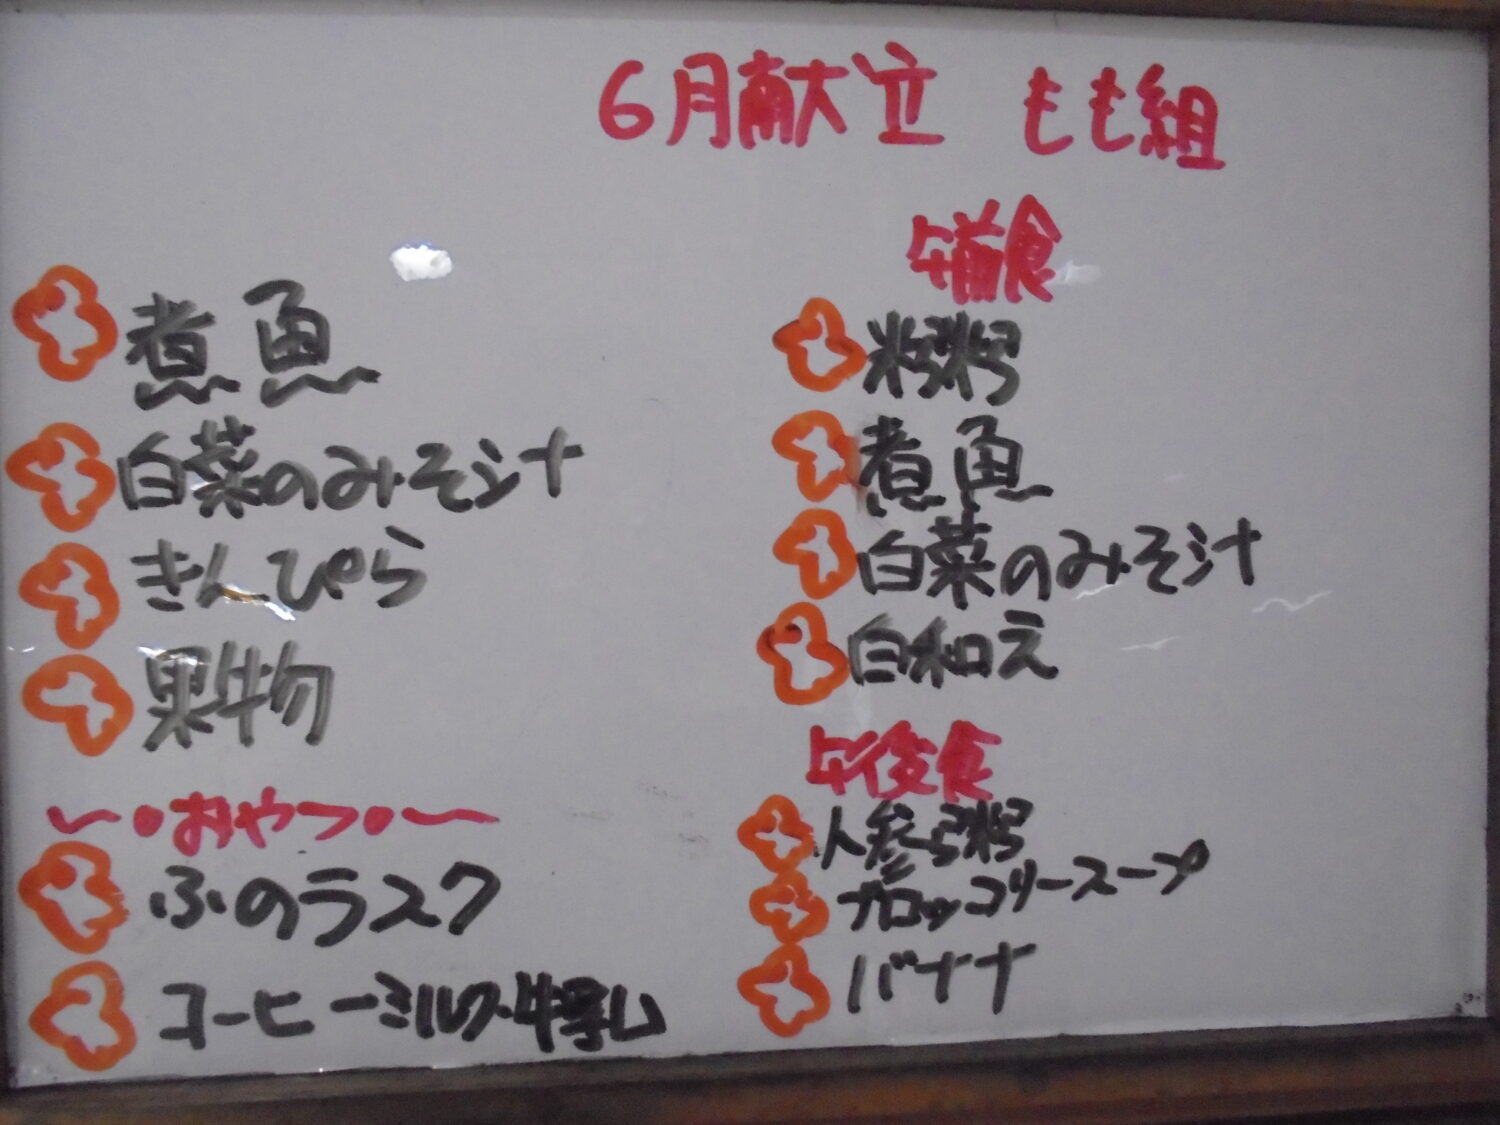 6月献立 もも組
煮魚
白菜のみそ汁
きんぴら
果物
〜・おやつ・〜
ふのラスク
コーヒーミルク・牛乳
午前食
粥
煮魚
白菜のみそ汁
白和え
午後食
人参粥
ブロッコリースープ
バナナ